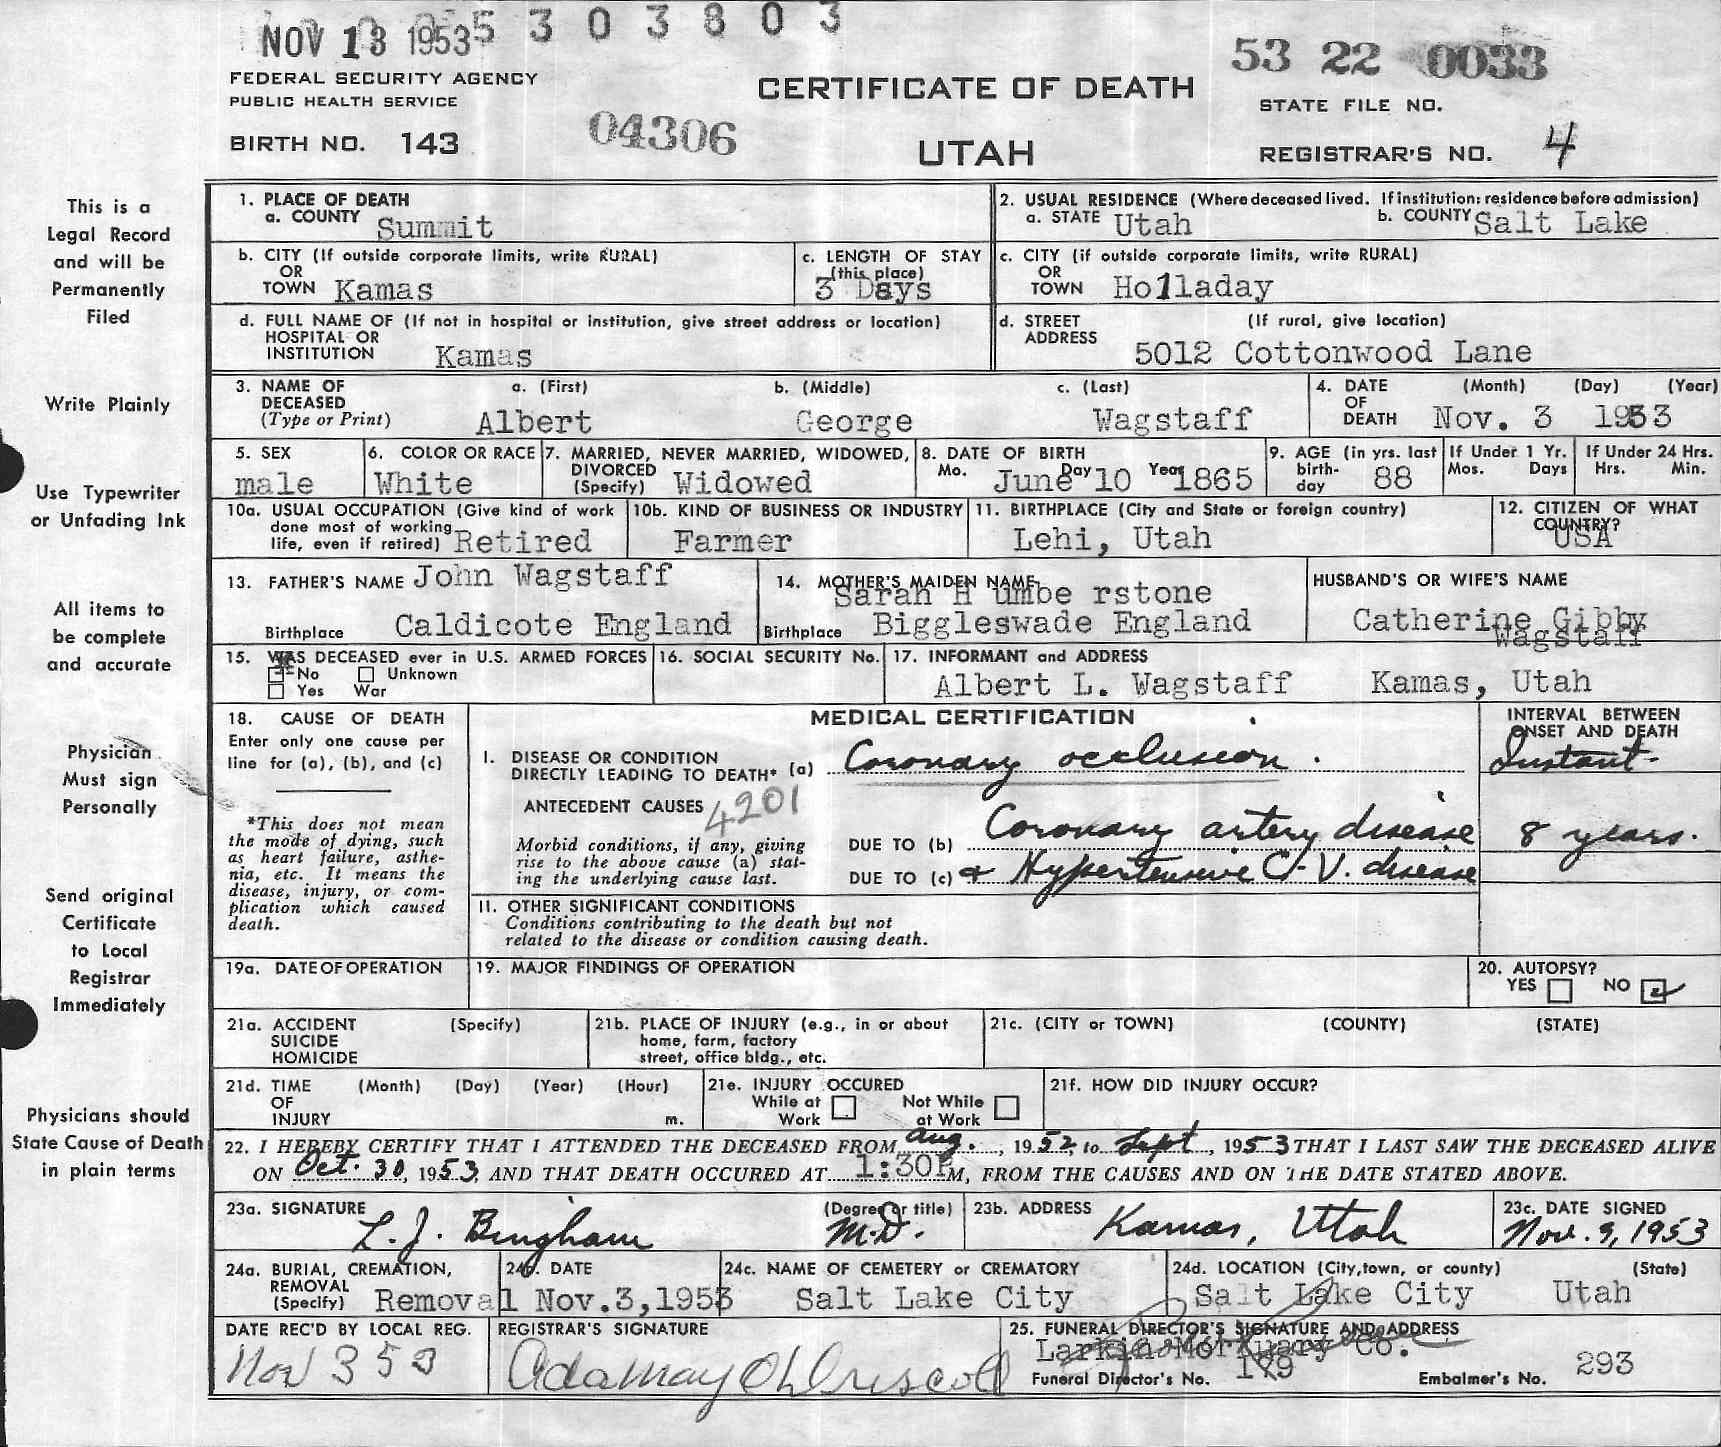 NOV 13 1953 5 3 0 3 8 0 3
53 22 0033
FEDERAL SECURITY AGENCY
PUBLIC HEALTH SERVICE
CERTIFICATE OF DEATH
STATE FILE NO.
BIRTH NO. 143
04306
UTAH
REGISTRAR'S NO. 4
This is a
Legal Record
and will be
Permanently
Filed
Write Plainly
Use Typewriter
or Unfading Ink
All items to
be complete
and accurate
Physician
Must sign
Personally
Send original
Certificate
to Local
Registrar
Immediately
Physicians should
State Cause of Death
in plain terms
1. PLACE OF DEATH
a. COUNTY Summit
2. USUAL RESIDENCE (Where deceased lived. If institution: residence before admission)
a. STATE Utah b. COUNTY Salt Lake
b. CITY (If outside corporate limits, write RURAL)
OR
TOWN Kamas
c. LENGTH OF STAY
(this place)
3 Days
c. CITY (if outside corporate limits, write RURAL)
OR
TOWN Holladay
d. FULL NAME OF (If not in hospital or institution, give street address or location)
HOSPITAL OR
INSTITUTION Kamas
d. STREET (If rural, give location)
ADDRESS
5012 Cottonwood Lane
3. NAME OF a. (First) b. (Middle) c. (Last)
DECEASED
(Type or Print) Albert George Wagstaff
4. DATE (Month) (Day) (Year)
OF
DEATH Nov. 3 1953
5. SEX
male
6. COLOR OR RACE
White
7. MARRIED, NEVER MARRIED, WIDOWED,
DIVORCED
(Specify) Widowed
8. DATE OF BIRTH
Mo. Day Year
June 10 1865
9. AGE (in yrs. last
birth-
day 88
If Under 1 Yr.
Mos. Days
If Under 24 Hrs.
Hrs. Min.
10a. USUAL OCCUPATION (Give kind of work
done most of working
life, even if retired) Retired
10b. KIND OF BUSINESS OR INDUSTRY
Farmer
11. BIRTHPLACE (City and State or foreign country)
Lehi, Utah
12. CITIZEN OF WHAT
COUNTRY?
USA
13. FATHER'S NAME John Wagstaff
Birthplace Caldicote England
14. MOTHER'S MAIDEN NAME
Sarah H umbe rstone
Birthplace Biggleswade England
HUSBAND'S OR WIFE'S NAME
Catherine Gibby
Wagstaff
15. WAS DECEASED ever in U.S. ARMED FORCES
No Unknown
Yes War
16. SOCIAL SECURITY No.
17. INFORMANT and ADDRESS
Albert L. Wagstaff Kamas, Utah
18. CAUSE OF DEATH
Enter only one cause per
line for (a), (b), and (c)
*This does not mean
the mode of dying, such
as heart failure, asthe-
nia, etc. It means the
disease, injury, or com-
plication which caused
death.
MEDICAL CERTIFICATION
INTERVAL BETWEEN
ONSET AND DEATH
I. DISEASE OR CONDITION
DIRECTLY LEADING TO DEATH* (a) Coronary occlusion. Instant.
ANTECEDENT CAUSES 4201
Morbid conditions, if any, giving
rise to the above cause (a) stat-
ing the underlying cause last.
DUE TO (b) Coronary artery disease 8 years.
DUE TO (c) & Hypertensive C.V. disease
II. OTHER SIGNIFICANT CONDITIONS
Conditions contributing to the death but not
related to the disease or condition causing death.
19a. DATE OF OPERATION
19. MAJOR FINDINGS OF OPERATION
20. AUTOPSY?
YES NO
21a. ACCIDENT (Specify)
SUICIDE
HOMICIDE
21b. PLACE OF INJURY (e.g., in or about
home, farm, factory
street, office bldg., etc.
21c. (CITY or TOWN) (COUNTY) (STATE)
21d. TIME (Month) (Day) (Year) (Hour)
OF
INJURY m.
21e. INJURY OCCURED
While at Not While
Work at Work
21f. HOW DID INJURY OCCUR?
22. I HEREBY CERTIFY THAT I ATTENDED THE DECEASED FROM Aug., 1952, to Sept, 1953 THAT I LAST SAW THE DECEASED ALIVE
ON Oct. 30, 1953, AND THAT DEATH OCCURED AT 1:30P M, FROM THE CAUSES AND ON THE DATE STATED ABOVE.
23a. SIGNATURE (Degree or title)
L. J. Bingham M.D.
23b. ADDRESS
Kamas, Utah
23c. DATE SIGNED
Nov. 9, 1953
24a. BURIAL, CREMATION,
REMOVAL
(Specify) Removal
24b. DATE
Nov.3,1953
24c. NAME OF CEMETERY or CREMATORY
Salt Lake City
24d. LOCATION (City, town, or county) (State)
Salt Lake City Utah
DATE REC'D BY LOCAL REG.
Nov 3 53
REGISTRAR'S SIGNATURE
Ada May O'Driscoll
25. FUNERAL DIRECTOR'S SIGNATURE AND ADDRESS
Larkin Mortuary Co.
Funeral Director's No. 179 Embalmer's No. 293